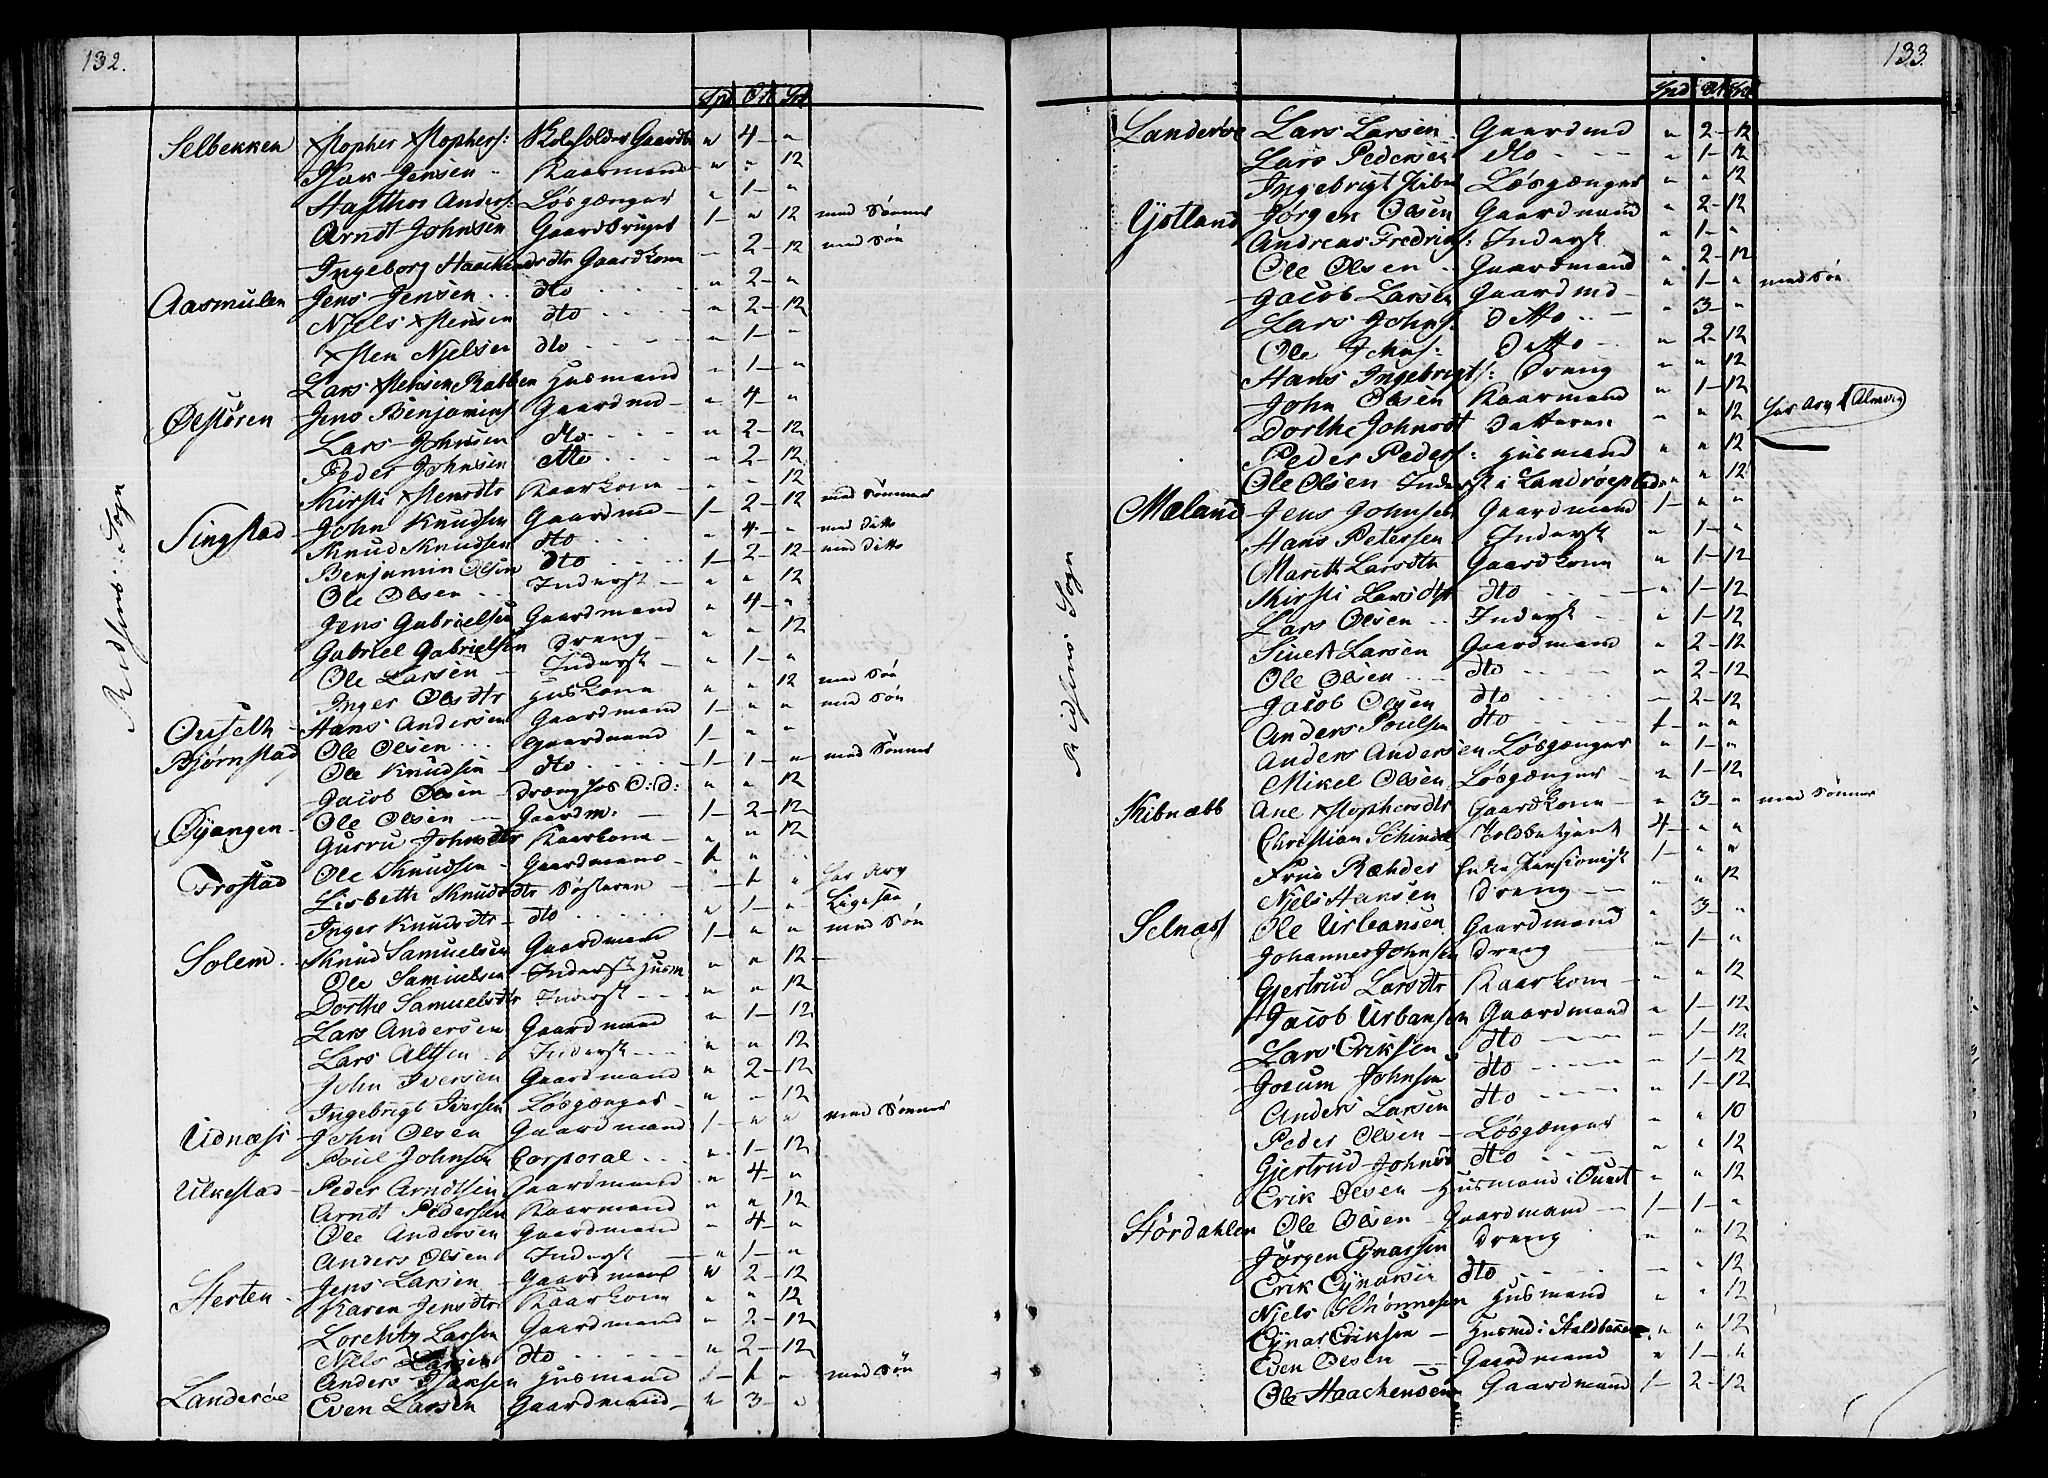 132.
Spd Ort Sk
Ridsens Sogn
Selbekken Xstopher Xstophers: Skoleholder Gaardbr " 4 - "
Isak Jensen Kaarmand " " 12
Hafthor Anders: Løsgænger " 1 - "
Arndt Johnsen Gaardbruger 1 - " 12 med Sønner
Ingeborg Haachensdtr Gaardkone - 2 - 12 med Søn
Aasmulen Jens Jensen dto " 2 - "
Njels Xstensen dto " 2 - 12
Xsten Njelsen dto " 1 - "
Lars Xstensen Rabben Husmand " 1 - "
Ølstøren Jens Benjamins: Gaardmd " 4 - "
Lars Johnsen dto " 2 - 12
Peder Johnsen dtto " 2 - 12
Kirsti Xstensdtr Kaarkone - " 12
Singstad John Knudsen Gaardmd 1 - 2 - 12 med Sønner
Knud Knudsen dto " 4 - " med ditto
Benjamin Olsen dto 1 - 2 - 12 med ditto
Ole Olsen Inderst " " 12
Jens Gabrielsen Gaardmand " 4 - "
Gabriel Gabrielsen Dreng " " 12
Ole Larsen Inderst " 1 - "
Inger Olsdtr Huskone " " 12 med Søn
Ouseth Hans Andersen Gaardmand 1 - " " med Søn
Bjørnstad Ole Olsen Gaardmand 1 - " "
Ole Knudsen dto 1 - 1 - " med Sønner
Jacob Olsen Dræng hos O: O: " " 12
Øyangen Ole Olsen Gaardm: 1 - 2 - 12
Gurru Johnsdtr Kaarkone " " 12
Trøstad Ole Knudsen Gaardmand 1 "
Lisbeth Knudsdtr Søsteren - 1 " har Arv
Inger Knudsdtr dto " 1 - " Ligesaa
Solem Knud Samuelsen Gaardmand 1 - " " med Søn
Ole Samuelsen Inderst Husm " " 12 -
Dorthe Samuelsdtr Inderst " " 12
Lars Andersen Gaardmand " 1 - 12
Lars Altsen Inderst " " 12
John Iversen Gaardmand " 2 - 12
Ingebrigt Iversen Løsgænger " " 12
Udnæss John Olsen Gaardmand 1 - " " med Sønner
Poul Johnsen Corporal " 1 - 12
Ulkestad Peder Arndtsen Gaardmand " 4 - "
Arndt Pedersen Kaarmand " " 12
Ole Andersen Gaardmand " 4 - "
Anders Olsen Inderst - " 1 - "
Sterten Jens Larsen Gaardmand " 2 - 12
Karen Jensdtr Kaarkone " " 12
Lorentz Larsen Gaardmand " 2 - 12
Njels Larsen dto " 2 - 12
Anders Isaksen Husmand 1 - 1 - " med Søn
Landerøe Even Larsen Gaardmand " 3 - "
133.
Spd Ort Sk
Ridsens Sogn
Landerøe Lars Larsen Gaardmd " 2 - 12
Lars Pedersen dto " 1 - 12
Ingebrigt Løsgænger " " 12
Ystland Jørgen Olsen Gaardmand " 2 - 12
Andreas Fredriks: Inderst " 1 - "
Ole Olsen Gaardmand " 2 - 12
Jacob Larsen Gaardmd " 1 - " med Søn
Lars Johns: Ditto " 3 - "
Ole Johns: Ditto " 2 - 12
Hans Ingebrigts: Dreng " " 12
John Olsen Kaarmand " 1 - 12
Dorthe Johnsdt Datteren " " 12 har Arv
Peder Peders: Husmand " " 12
Ole Olsen Inderst i Landrøepladsen " " 12
Mæland Jens Johnsen Gaardmand 1 - " "
Hans Petersen Inderst " 1 - "
Marith Larsdtr Gaardkone " 1 - 12
Kirsti Larsdtr dto " 1 - 12
Lars Olsen Inderst " 1 - 12
Sivert Larsen Gaardmand " 2 - 12
Ole Olsen dto " 2 - 12
Jacob Olsen dto - 2 - 12
Anders Poulsen dto 1 - " "
Anders Andersen Løsgænger " 1 - "
Mikel Olsen Løsgænger " 1 - 12
Kibnæbb Ane Xstophersdtr Gaardkone " 3 - " med Sønner
Christian Schindel Toldbetjent 4 - " "
Frue Ræhder Enke Pensionist 1 - " "
Njels Hansen Dreng " " 12
Selnæss Ole Urbansen Gaardmand " 3 - "
Johannes Johnsen Dreng " 1 - "
Gjertrud Larsdtr Kaarkone " " 12
Jacob Urbansen Gaardmand " 1 - 12
Lars Eriksen dto " 1 - 12
Jocum Johnsen dto " 1 - 12
Anders Larsen dto " 1 - 12
Peder Olsen Løsgænger " " 10
Gjertrud Johnsd dto " " 12
Erik Olsen Husmand i " " 12
Størdahlen Ole Olsen Gaardmand 1 - 1 - "
Jørgen Eynarsen Dreng " " 12
Erik Eynarsen dto - " 12
Njels Husmand " " 12
Eynar Eriksen Husmd i " " 12
Even Olsen Gaardmand " 1 - "
Ole Haachensen Gaardmand 1 - 2 - 12